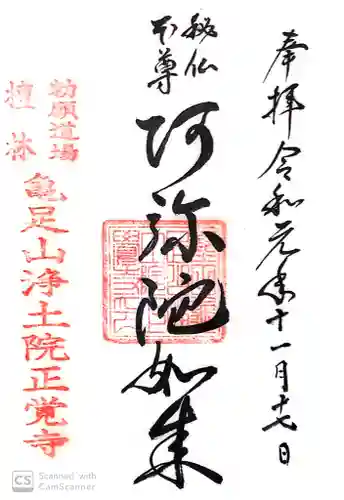 奉拝 令和元年十一月十七日
秘仏
本尊
阿弥陀如来
勅願道場
檀林
亀足山浄土院正覚寺
CS Scanned with
CamScanner